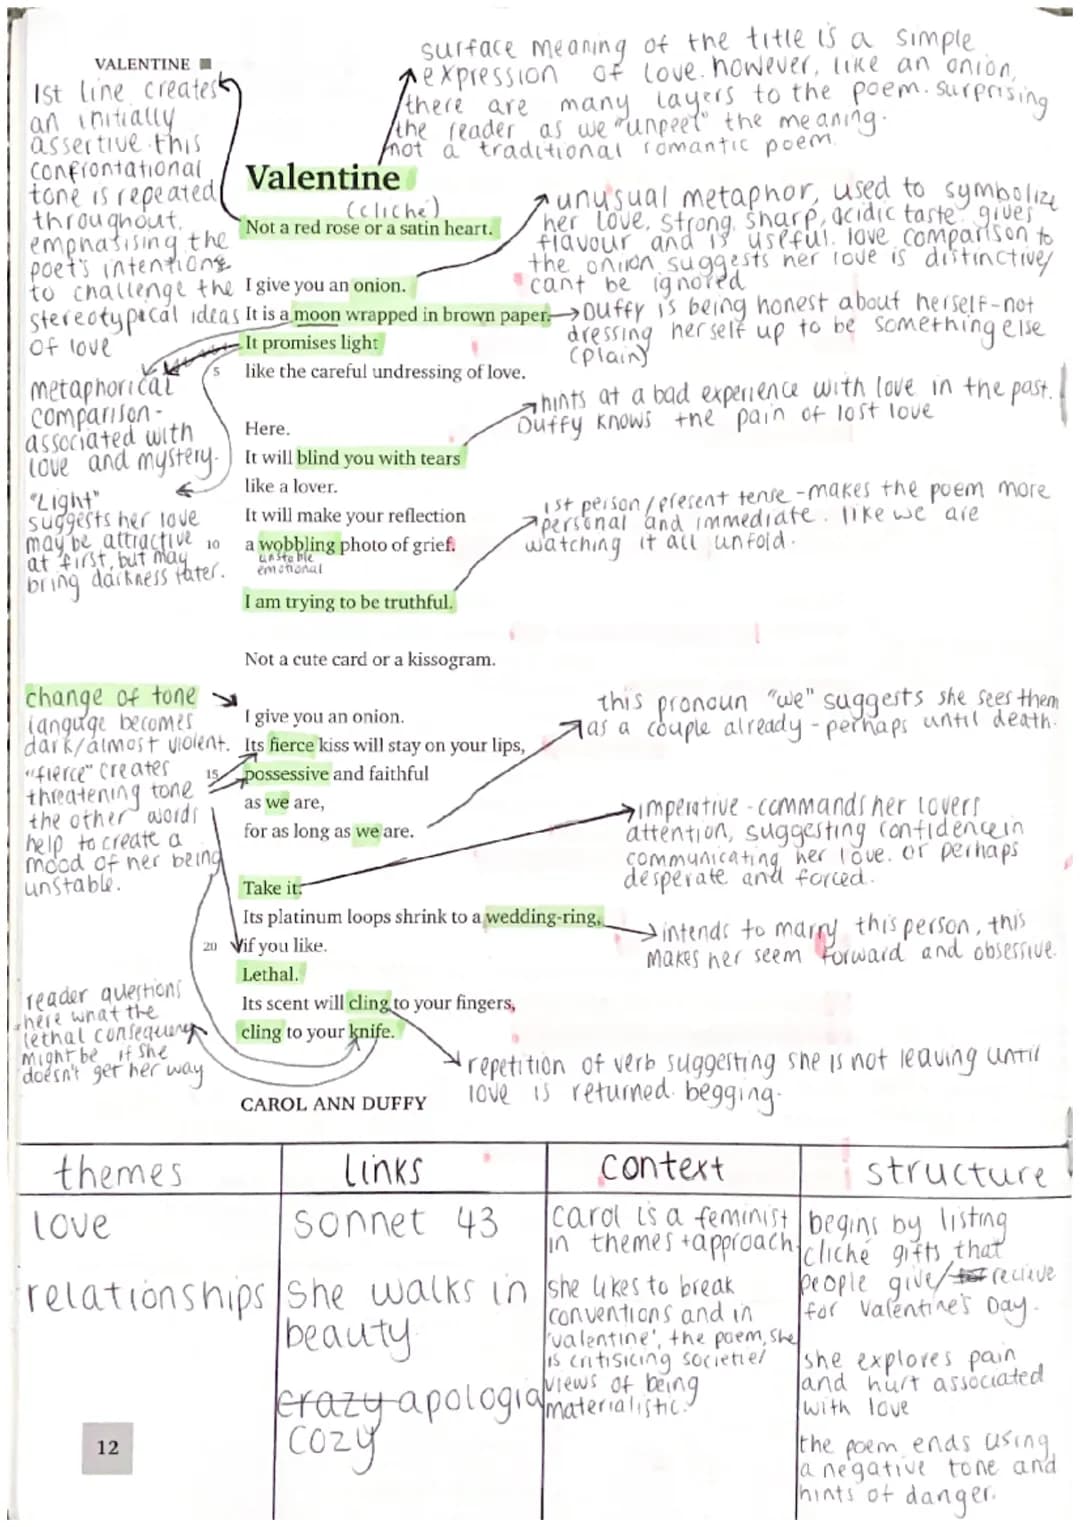 VALENTINE
surface meaning of the title is a simple
expression of love. however, like an onion,
there are many layers to the poem. surprising
the reader as we "unpeel" the meaning.
not a traditional romantic poem.
1st line creates
an initially
assertive. this
confrontational
tone is repeated
throughout,
emphasising the
poet's intentions
to challenge the
stereotypical ideas
of love
Valentine
(cliché)
Not a red rose or a satin heart.
unusual metaphor, used to symbolize
her love. strong, sharp, acidic taste. gives
flavour and is useful. love comparison to
the onion suggests her love is distinctive/
cant be ignored
I give you an onion.
It is a moon wrapped in brown paper.
Duffy is being honest about herself - not
dressing herself up to be something else
(plain)
It promises light
5
like the careful undressing of love.
metaphorical
comparison -
associated with
love and mystery.
hints at a bad experience with love in the past.
Duffy knows the pain of lost love
Here.
It will blind you with tears
like a lover.
It will make your reflection
10
a wobbling photo of grief.
unstable
emotional
"Light"
suggests her love
may be attractive
at first, but may
bring darkness later.
1st person/present tense - makes the poem more
personal and immediate. like we are
watching it all unfold.
I am trying to be truthful.
Not a cute card or a kissogram.
change of tone
language becomes
dark/almost violent.
"fierce" creates
threatening tone
the other words
help to create a
mood of her being
unstable.
I give you an onion.
Its fierce kiss will stay on your lips,
15
possessive and faithful
as we are,
for as long as we are.
this pronoun "we" suggests she sees them
as a couple already - perhaps until death.
imperative - commands her lovers
attention, suggesting confidence in
communicating her love. or perhaps
desperate and forced.
Take it.
Its platinum loops shrink to a wedding-ring,
20
if you like.
intends to marry this person, this
makes her seem forward and obsessive.
Lethal.
Its scent will cling to your fingers,
cling to your knife.
reader questions
here what the
lethal consequence
might be if she
doesn't get her way
repetition of verb suggesting she is not leaving until
love is returned. begging.
CAROL ANN DUFFY
themes
love
relationships
links
sonnet 43
she walks in
beauty
crazy apologia
cozy
context
carol is a feminist
in themes + approach.
she likes to break
conventions and in
'valentine', the poem, she
is critisicing societie/
views of being
materialistic.
structure
begins by listing
cliché gifts that
people give/ recieve
for Valentine's Day.
she explores pain
and hurt associated
with love
the poem ends using
a negative tone and
hints of danger.
12